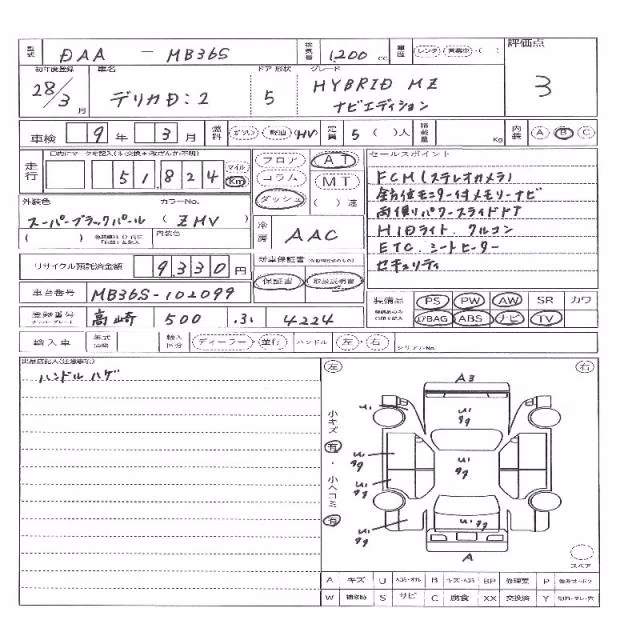 型式 DAA - MB36S 排気量 1,200 cc 車歴 レンタ・( )
評価点 3
初年度登録 車名 ドア形状 グレード
28/3月 デリカD:2 5 HYBRID MZ
ナビエディション
車検 9年 3月 燃料 ガソリン・軽油・HV 定員 5 ( )人 積載量 Kg 内装 A B C
走行 51,824 マイル Km
フロア AT
コラム MT
ダッシュ ( )速
セールスポイント
FCM(ステレオカメラ)
全方位モニター付メモリーナビ
両側パワースライドドア
HIDライト. クルコン
ETC. シートヒーター
セキュリティ
外装色 カラーNo.
スーパーブラックパール (ZHV)
内装色
冷房 AAC
リサイクル預託済金額 9,330円
保証書 取扱説明書
車台番号 MB36S-102099
装備品 PS PW AW SR カワ
ABS ナビ TV
登録番号 高崎 500 .3. 4224
輸入車 年式 輸入区分 ディーラー・並行 ハンドル 左・右 シリアルNo.
ハンドルハゲ
左 右
小キズ 有・小ヘコミ 有
A3
U1
U1
タタ
U1
タタ
U1
タタ
U1
タタ
U1 タタ
U1
タタ
A
スペア
A キズ U B BP 修理歴 P
W 補修跡 S サビ C 腐食 XX 交換済 Y